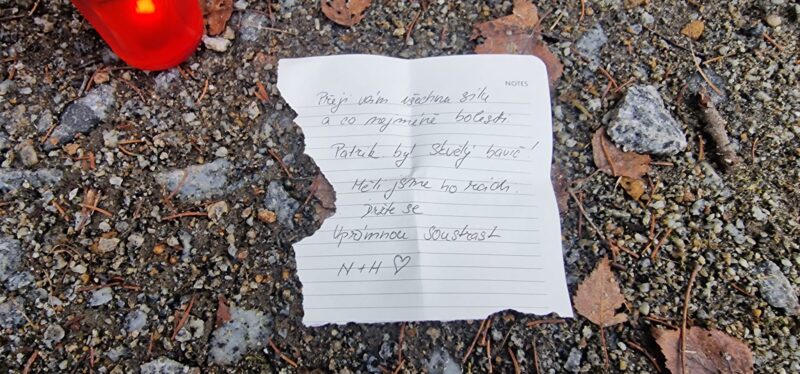 NOTES
Přeji vám všechnu sílu
a co nejméně bolesti.
Patrik byl skvělý bavič!
Měli jsme ho rádi.
Držte se
Upřímnou soustrast
N+H ♡